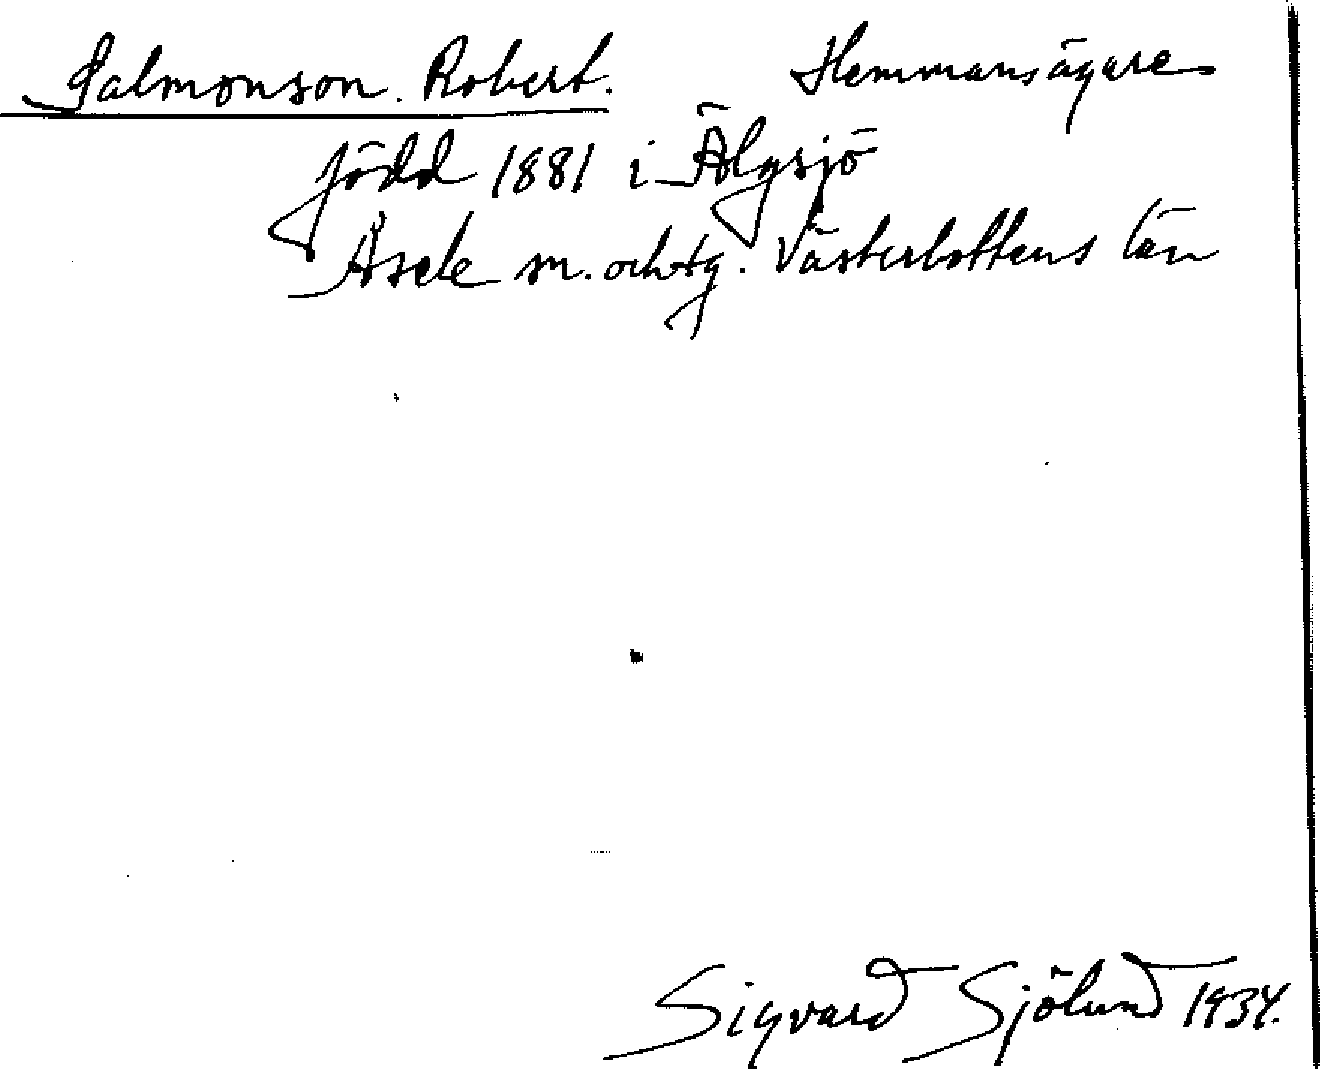 Salmonson. Robert. Hemmansägare
född 1881 i Älgsjö
Åsele sn. och tg. Västerbottens län
Sigvard Sjölund 1934.